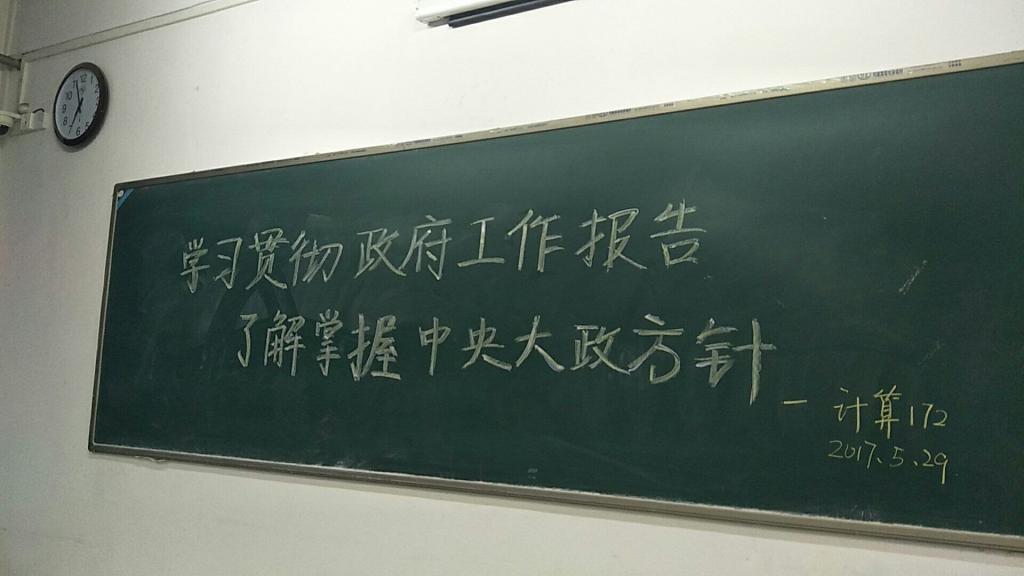 学习贯彻政府工作报告
了解掌握中央大政方针
- 计算172
2017.5.29